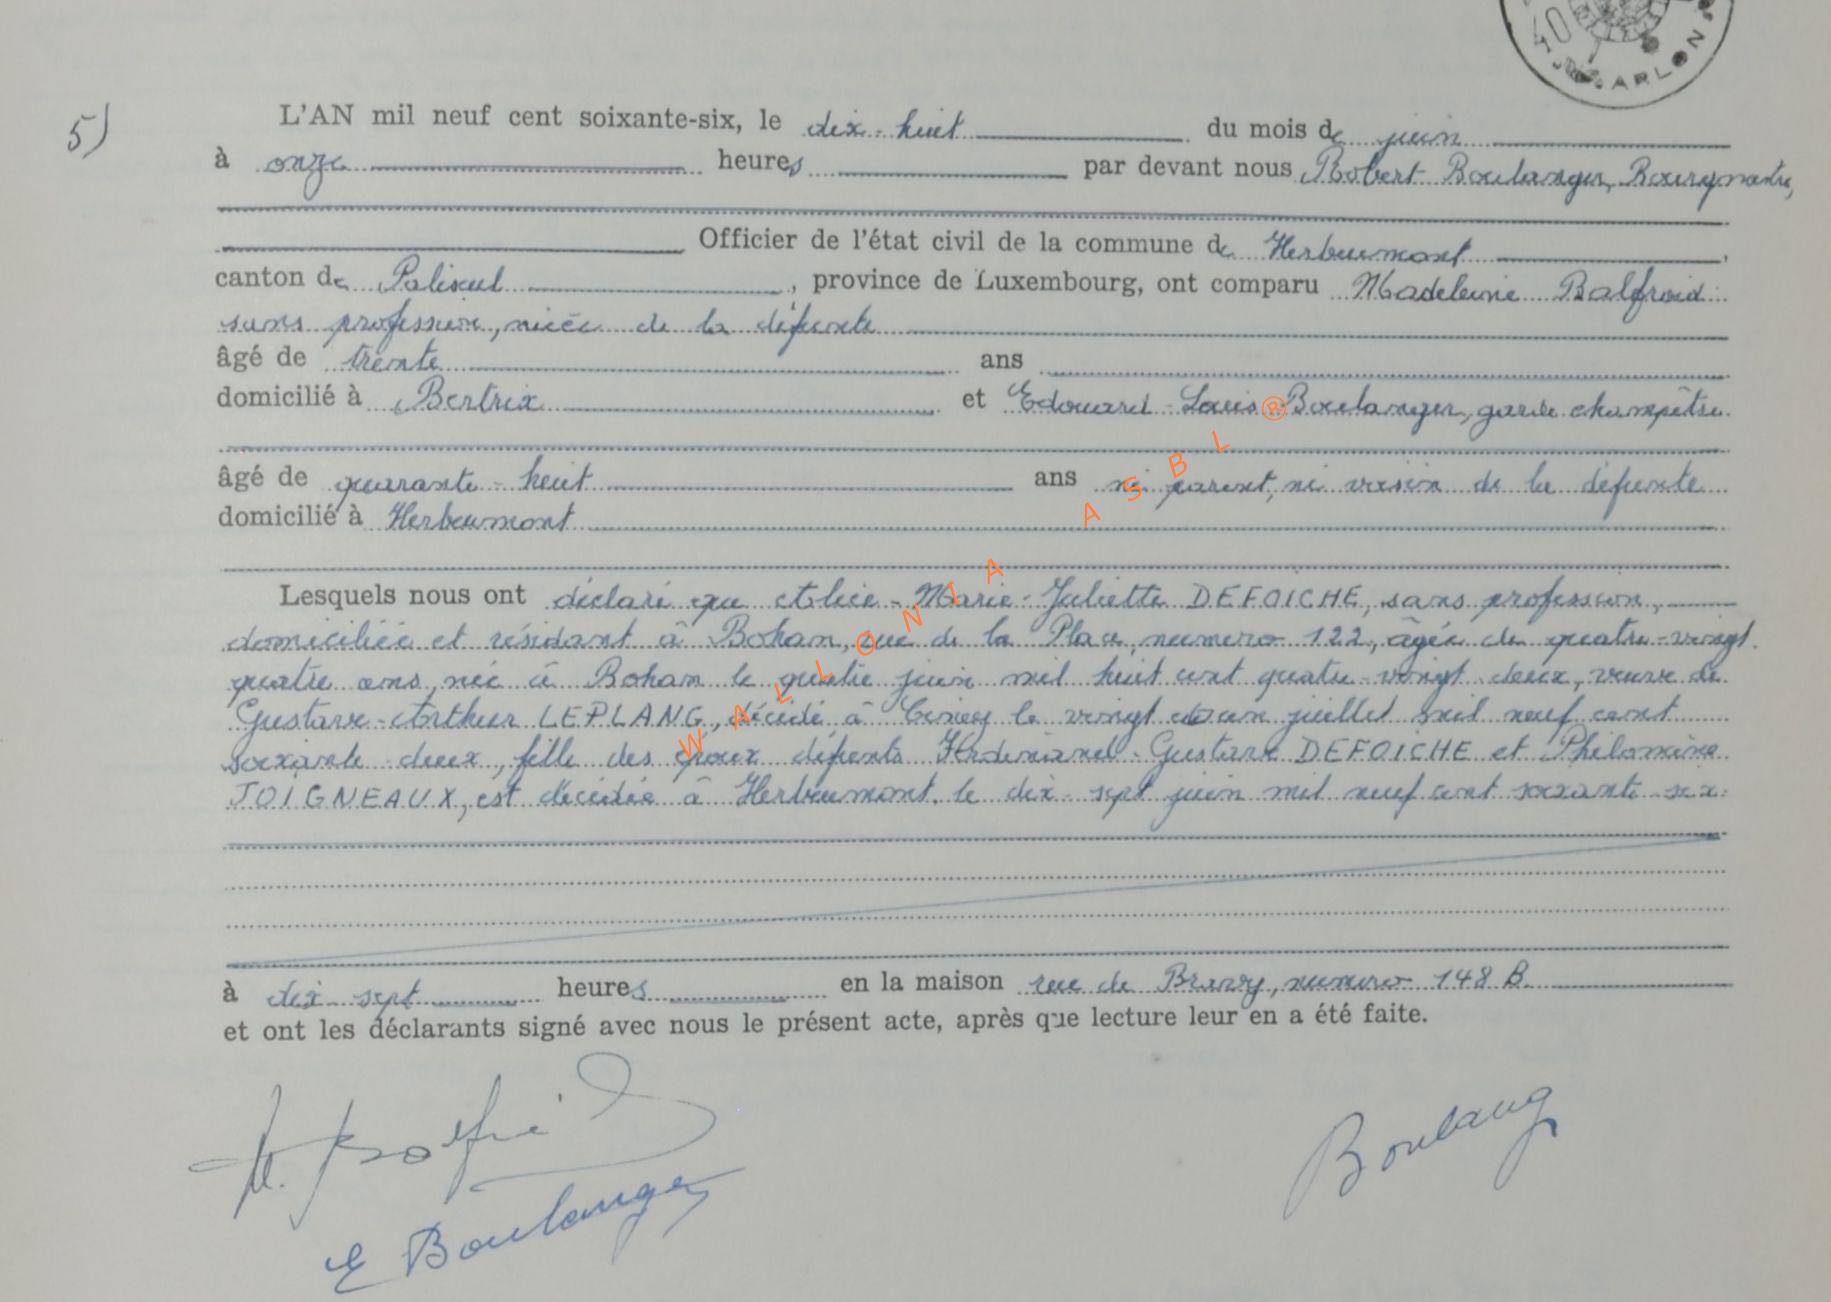 40 ARLON
5)
L'AN mil neuf cent soixante-six, le dix-huit du mois de juin
à onze heures par devant nous Robert Boulanger, Bourgmestre,
Officier de l'état civil de la commune de Herbeumont,
canton de Paliseul, province de Luxembourg, ont comparu Madeleine Balfroid
sans profession, nièce de la défunte
âgé de trente ans
domicilié à Bertrix et Edouard-Louis Boulanger, garde champêtre
âgé de quarante-huit ans ni parent, ni voisin de la défunte
domicilié à Herbeumont
Lesquels nous ont déclaré que Alice-Marie-Juliette DEFOICHE, sans profession,
domiciliée et résidant à Bohan, rue de la Place, numéro 122, âgée de quatre-vingt
quatre ans, née à Bohan le quatre juin mil huit cent quatre-vingt deux, veuve de
Gustave-Arthur LEPLANG, décédé à le vingt juillet mil neuf cent
soixante deux, fille des époux défunts Ferdinand-Gustave DEFOICHE et Philomène
JOIGNEAUX, est décédée à Herbeumont, le dix-sept juin mil neuf cent soixante-six
à dix-sept heures en la maison rue de numéro 148 B.
et ont les déclarants signé avec nous le présent acte, après que lecture leur en a été faite.
M. Balfroid
Boulang
E Boulanger
WALLONIA ASBL®